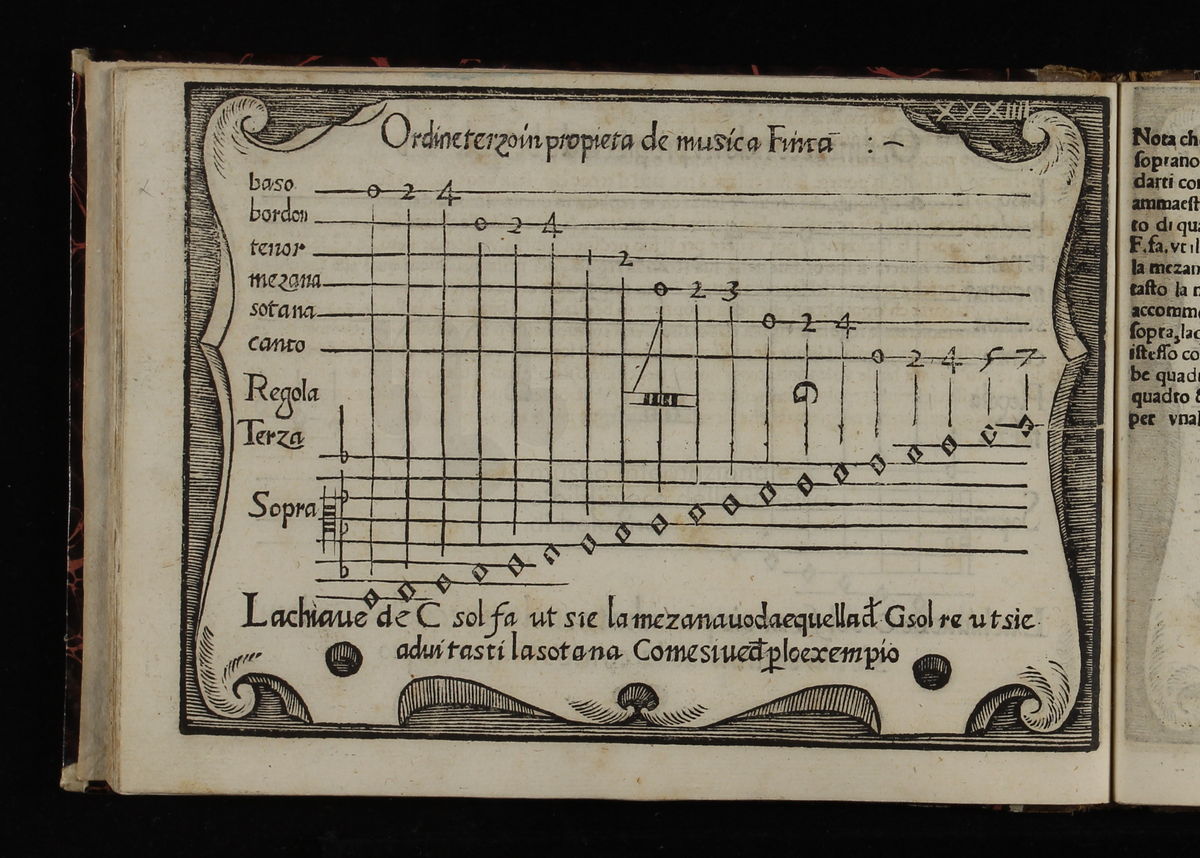 XXXIIII
Ordine terzo in propieta de musica Finta : –
baso 0 2 4
bordon 0 2 4
tenor 1 2
mezana 0 2 3
sotana 0 2 4
canto 0 2 4 5 7
Regola
Terza
Sopra
La chiaue de C sol fa ut sie la mezana uoda e quella đ G sol re ut sie
a dui tasti la sotana Come si uede p lo exempio
Nota ch
soprano
darti con
ammaest
to di qua
F. fa. vt il
la mezan
tasto la
accomm
sopra, la
istesso co
be quad
quadro &
per vna